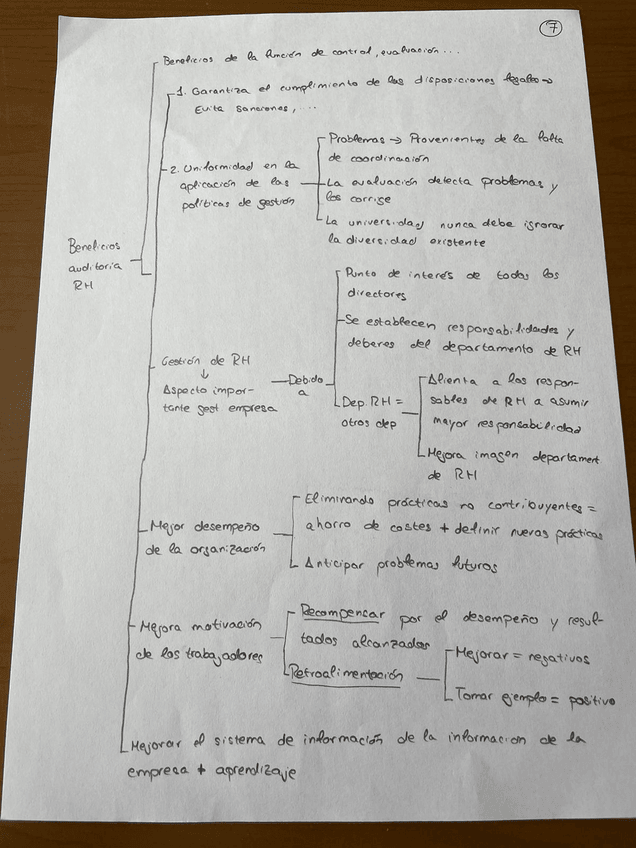 7
Beneficios de la función de control, evaluación...
1. Garantiza el cumplimiento de las disposiciones legales →
Evita sanciones, ...
2. Uniformidad en la
aplicación de las
políticas de gestión
Problemas → Provenientes de la falta
de coordinación
La evaluación detecta problemas y
los corrige
La universidad nunca debe ignorar
la diversidad existente
Beneficios
auditoria
RH
Gestión de RH
↓
Aspecto impor-
tante gest empresa
Debido
a
Punto de interés de todos los
directores
Se establecen responsabilidades y
deberes del departamento de RH
Dep RH =
otros dep
Alienta a los respon-
sables de RH a asumir
mayor responsabilidad
Mejora imagen departament
de RH
Mejor desempeño
de la organización
Eliminando prácticas no contribuyentes =
ahorro de costes + definir nuevas prácticas
Anticipar problemas futuros
Mejora motivación
de los trabajadores
Recompencar por el desempeño y resul-
tados alcanzados
Retroalimentación
Mejorar = negativos
Tomar ejemplo = positivo
Mejorar el sistema de información de la informacion de la
empresa + aprendizaje